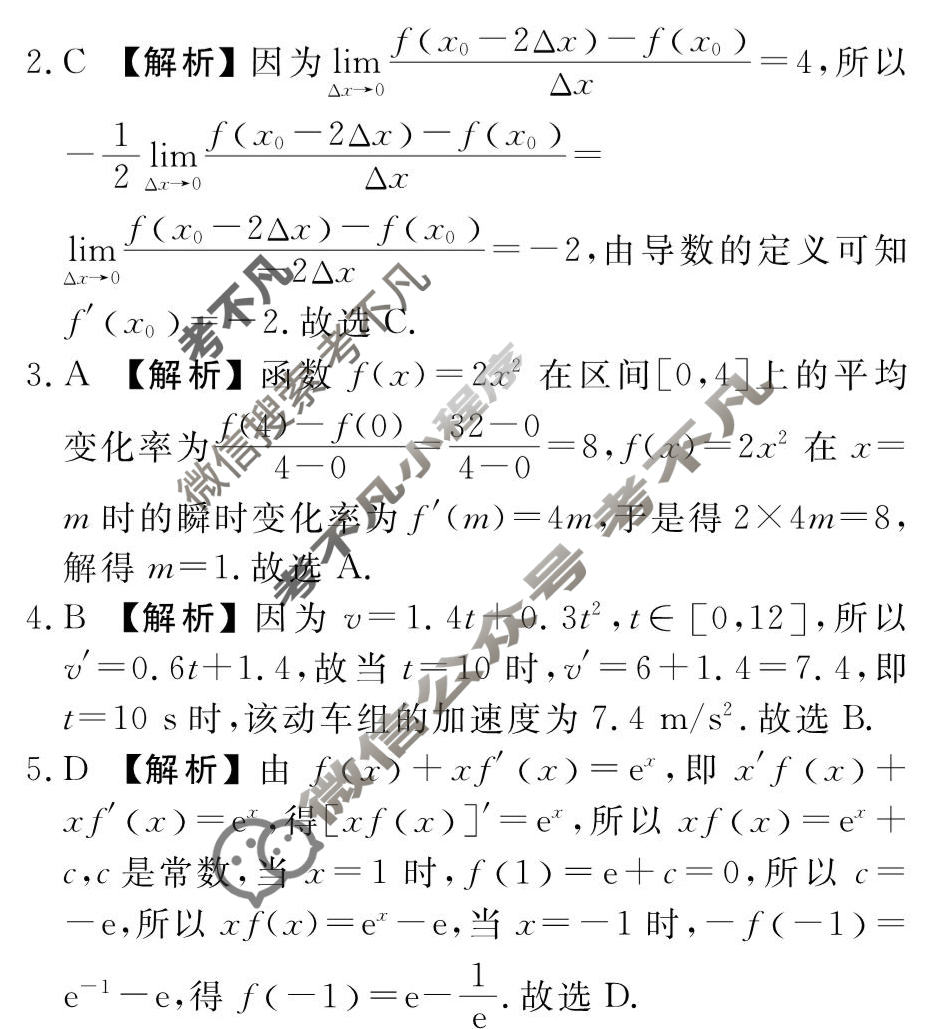 2. C 【解析】因为 lim_{Δx→0} \frac{f(x₀－2Δx)－f(x₀)}{Δx}＝4,所以
－\frac{1}{2} lim_{Δx→0} \frac{f(x₀－2Δx)－f(x₀)}{Δx}＝
lim_{Δx→0} \frac{f(x₀－2Δx)－f(x₀)}{－2Δx}＝－2,由导数的定义可知
f′(x₀)＝－2.故选 C.
3. A 【解析】函数 f(x)＝2x² 在区间[0,4]上的平均
变化率为\frac{f(4)－f(0)}{4－0}＝\frac{32－0}{4－0}＝8,f(x)＝2x² 在 x＝
m 时的瞬时变化率为 f′(m)＝4m,于是得 2×4m＝8,
解得 m＝1.故选 A.
4. B 【解析】因为 v＝1.4t＋0.3t²,t∈[0,12],所以
v′＝0.6t＋1.4,故当 t＝10 时,v′＝6＋1.4＝7.4,即
t＝10 s 时,该动车组的加速度为 7.4 m/s².故选 B.
5. D 【解析】由 f(x)＋xf′(x)＝eˣ,即 x′f(x)＋
xf′(x)＝eˣ,得[xf(x)]′＝eˣ,所以 xf(x)＝eˣ＋
c,c 是常数,当 x＝1 时,f(1)＝e＋c＝0,所以 c＝
－e,所以 xf(x)＝eˣ－e,当 x＝－1 时,－f(－1)＝
e⁻¹－e,得 f(－1)＝e－\frac{1}{e}.故选 D.
考不凡
微信搜索 考不凡
考不凡小程序
微信公众号 考不凡